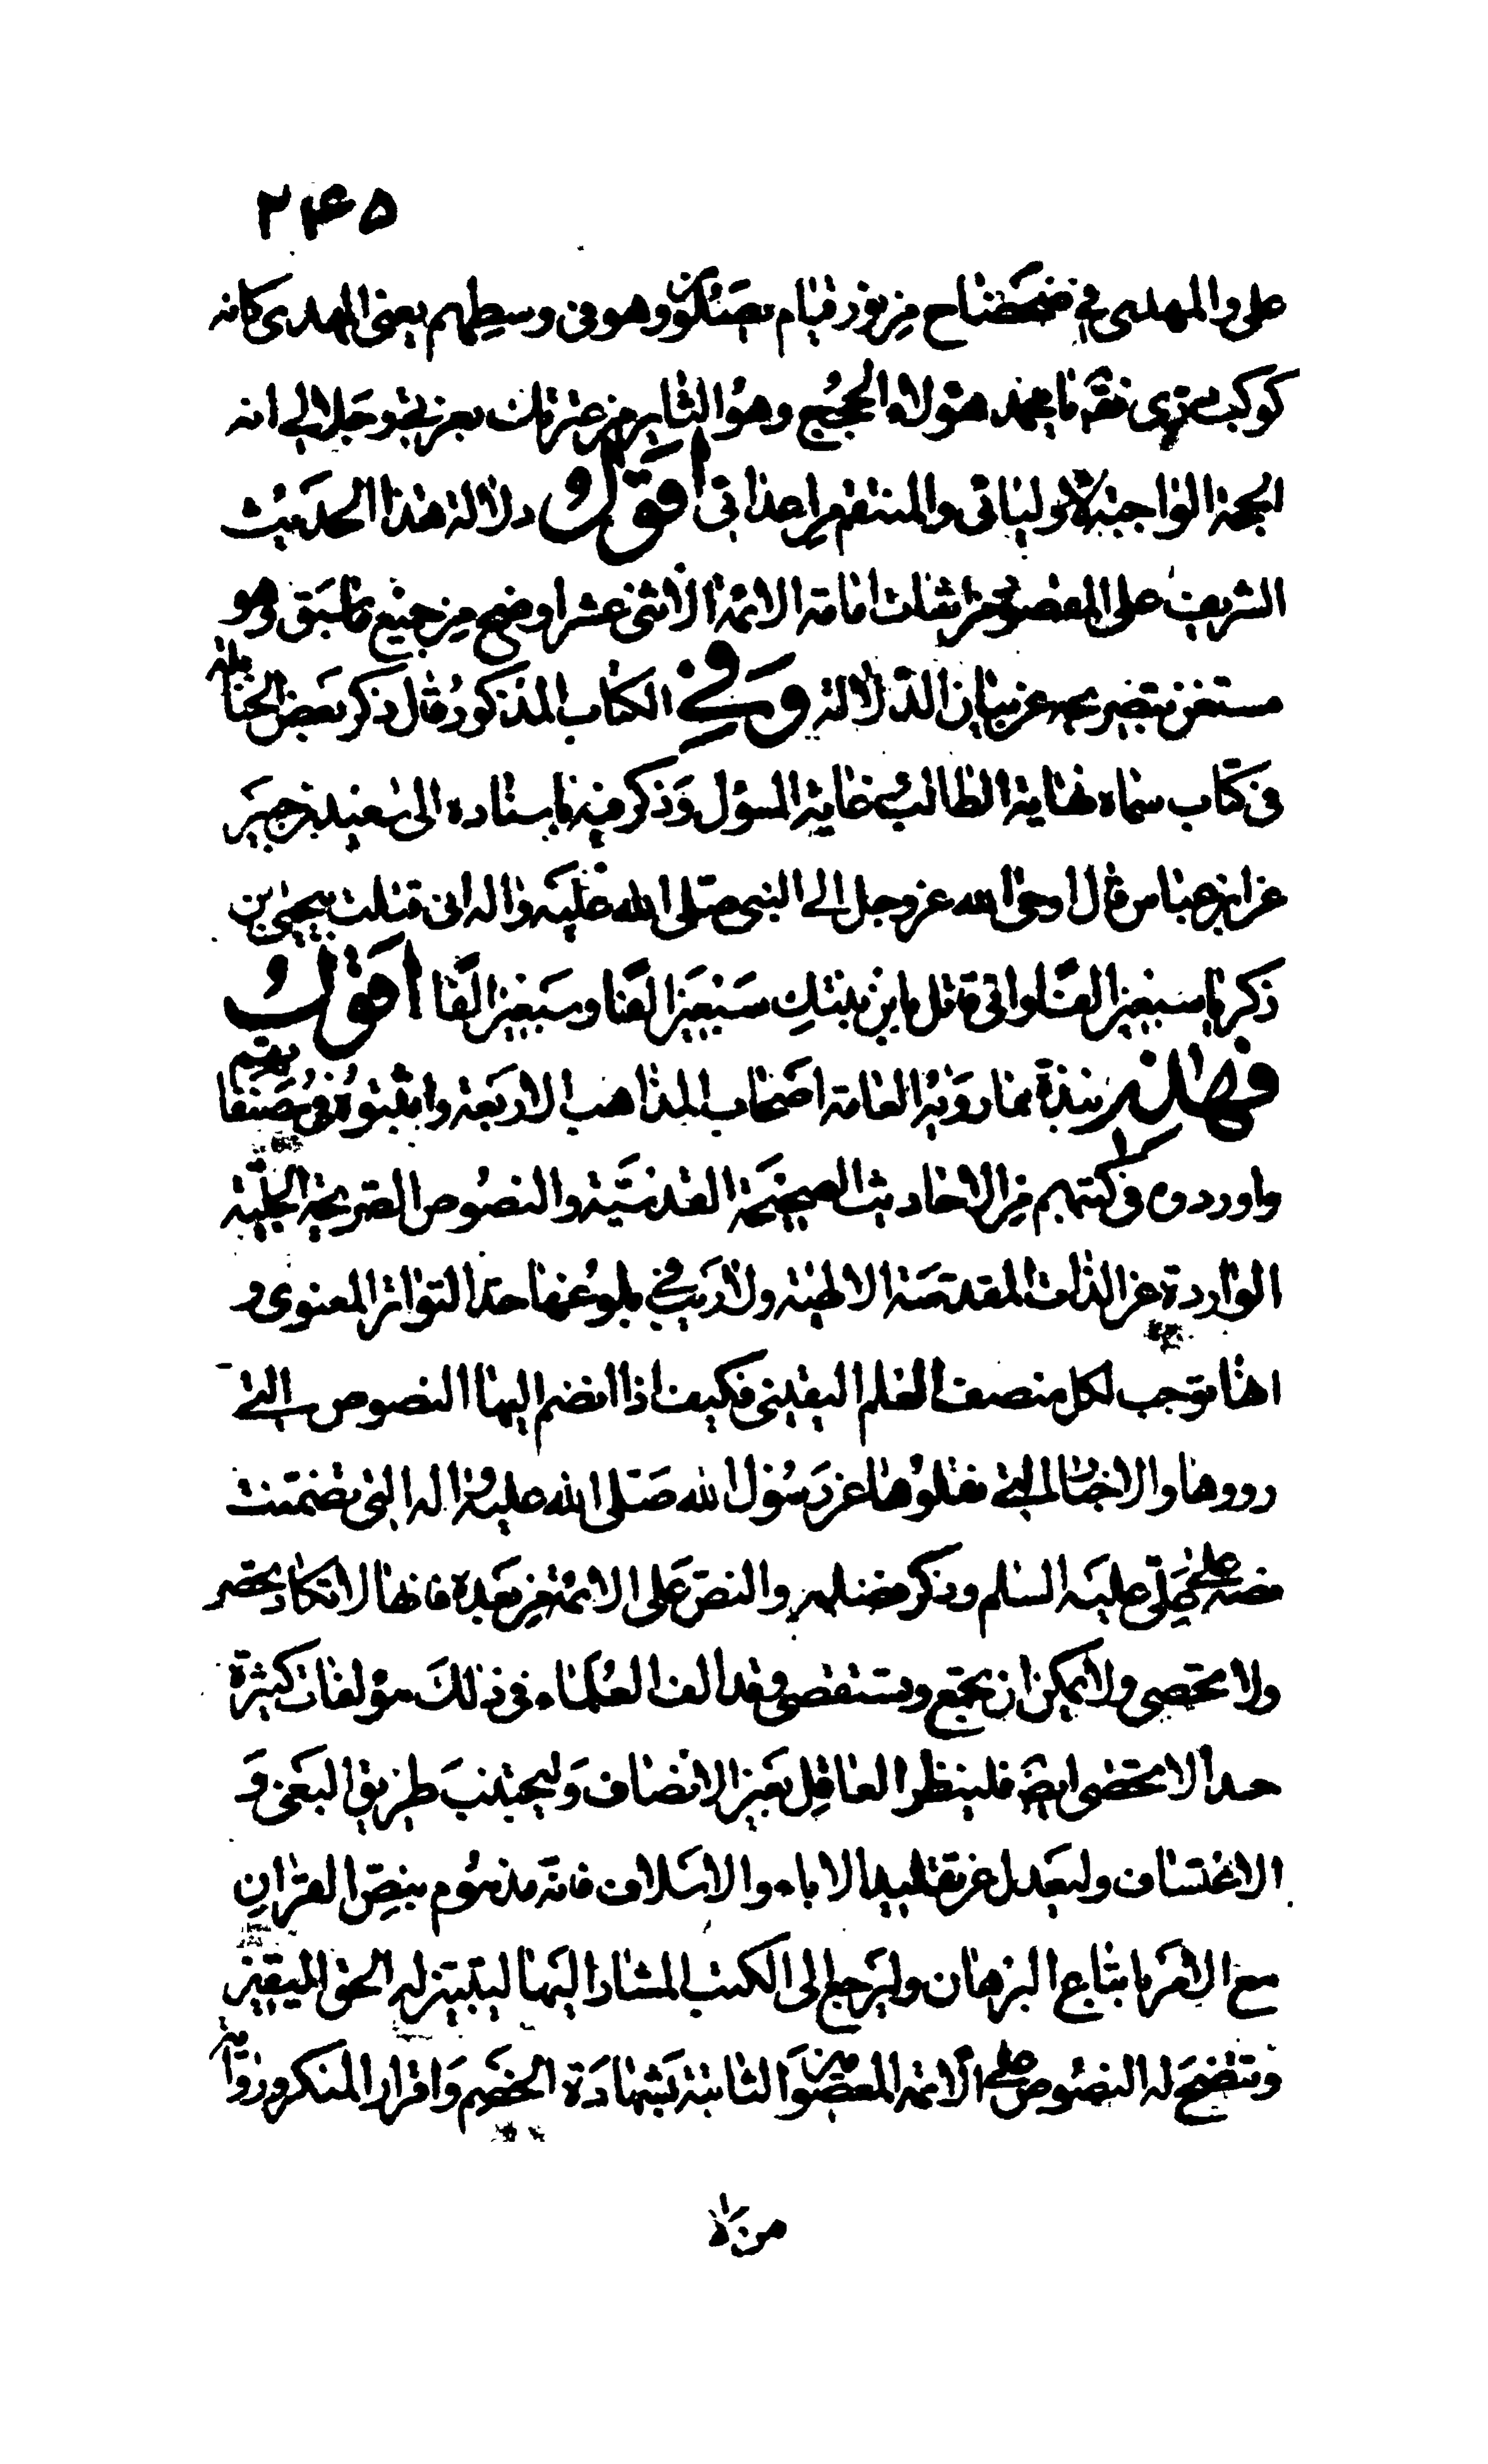 ۲۴۵
على والمهدى في ضحضاح من نور قيام يصلون وهو فى وسطهم يعنى المهدى كانه
كوكب درى فقال يا محمد هؤلاء الحجج وهو الثاير من عترتك بعزتى وجلالى انه
الحجة الواجبة لاوليائى والمنتقم من اعدائى اقول دلالة هذا الحديث
الشريف على المقصود من اثبات امامة الائمة الاثنى عشر اوضح من جميع ما سبق وهو
مستغن بتصريحه عن بيان الدلالة وفي الكتاب المذكور قال ذكر بعض الحنابلة
فى كتاب سماه نهاية الطالب غاية السؤل وذكر فيه باسناده الى سعيد بن جبير
عن ابن عباس قال اوحى الله عز وجل الى النبى صلى الله عليه واله انى قتلت بيحيى بن
ذكريا سبعين الفا وانى قاتل بابن بنتك سبعين الفا وسبعين الفا اقول
فهذه نبذة مما رويه العامة اصحاب المذاهب الاربعة واثبتوه فى مصنفاتهم
واوردوه فى كتبهم من الاحاديث الصحيحة القدسية والنصوص الصريحة الجلية
الواردة عن الذات المقدسة الالهية ولا ريب في بلوغها حد التواتر المعنوى و
انها توجب لكل منصف العلم اليقينى فكيف اذا انضم اليها النصوص التى
رووها والاخبار التي نقلوها عن رسول الله صلى الله عليه واله التى تضمنت
نصه على على عليه السلم وذكر فضله والنص على الائمة من بعده فانها لا تكاد تحصر
ولا تحصى ولا يمكن ان تجمع وتستقصى وقد الف العلماء فى ذلك مؤلفات كثيرة
جدا لا تحصى ايضا فلينظر العاقل بعين الانصاف وليجتنب طريق البغى و
الاعتساف وليعدل عن تقليد الاباء والاسلاف فانه مذموم بنص القران
مع الامر باتباع البرهان وليرجع الى الكتب المشار اليها ليتبين له الحق اليقين
وتتضح له النصوص على الائمة المعصومين الثابتة بشهادة الخصم واقرار المنكر وزوال
من